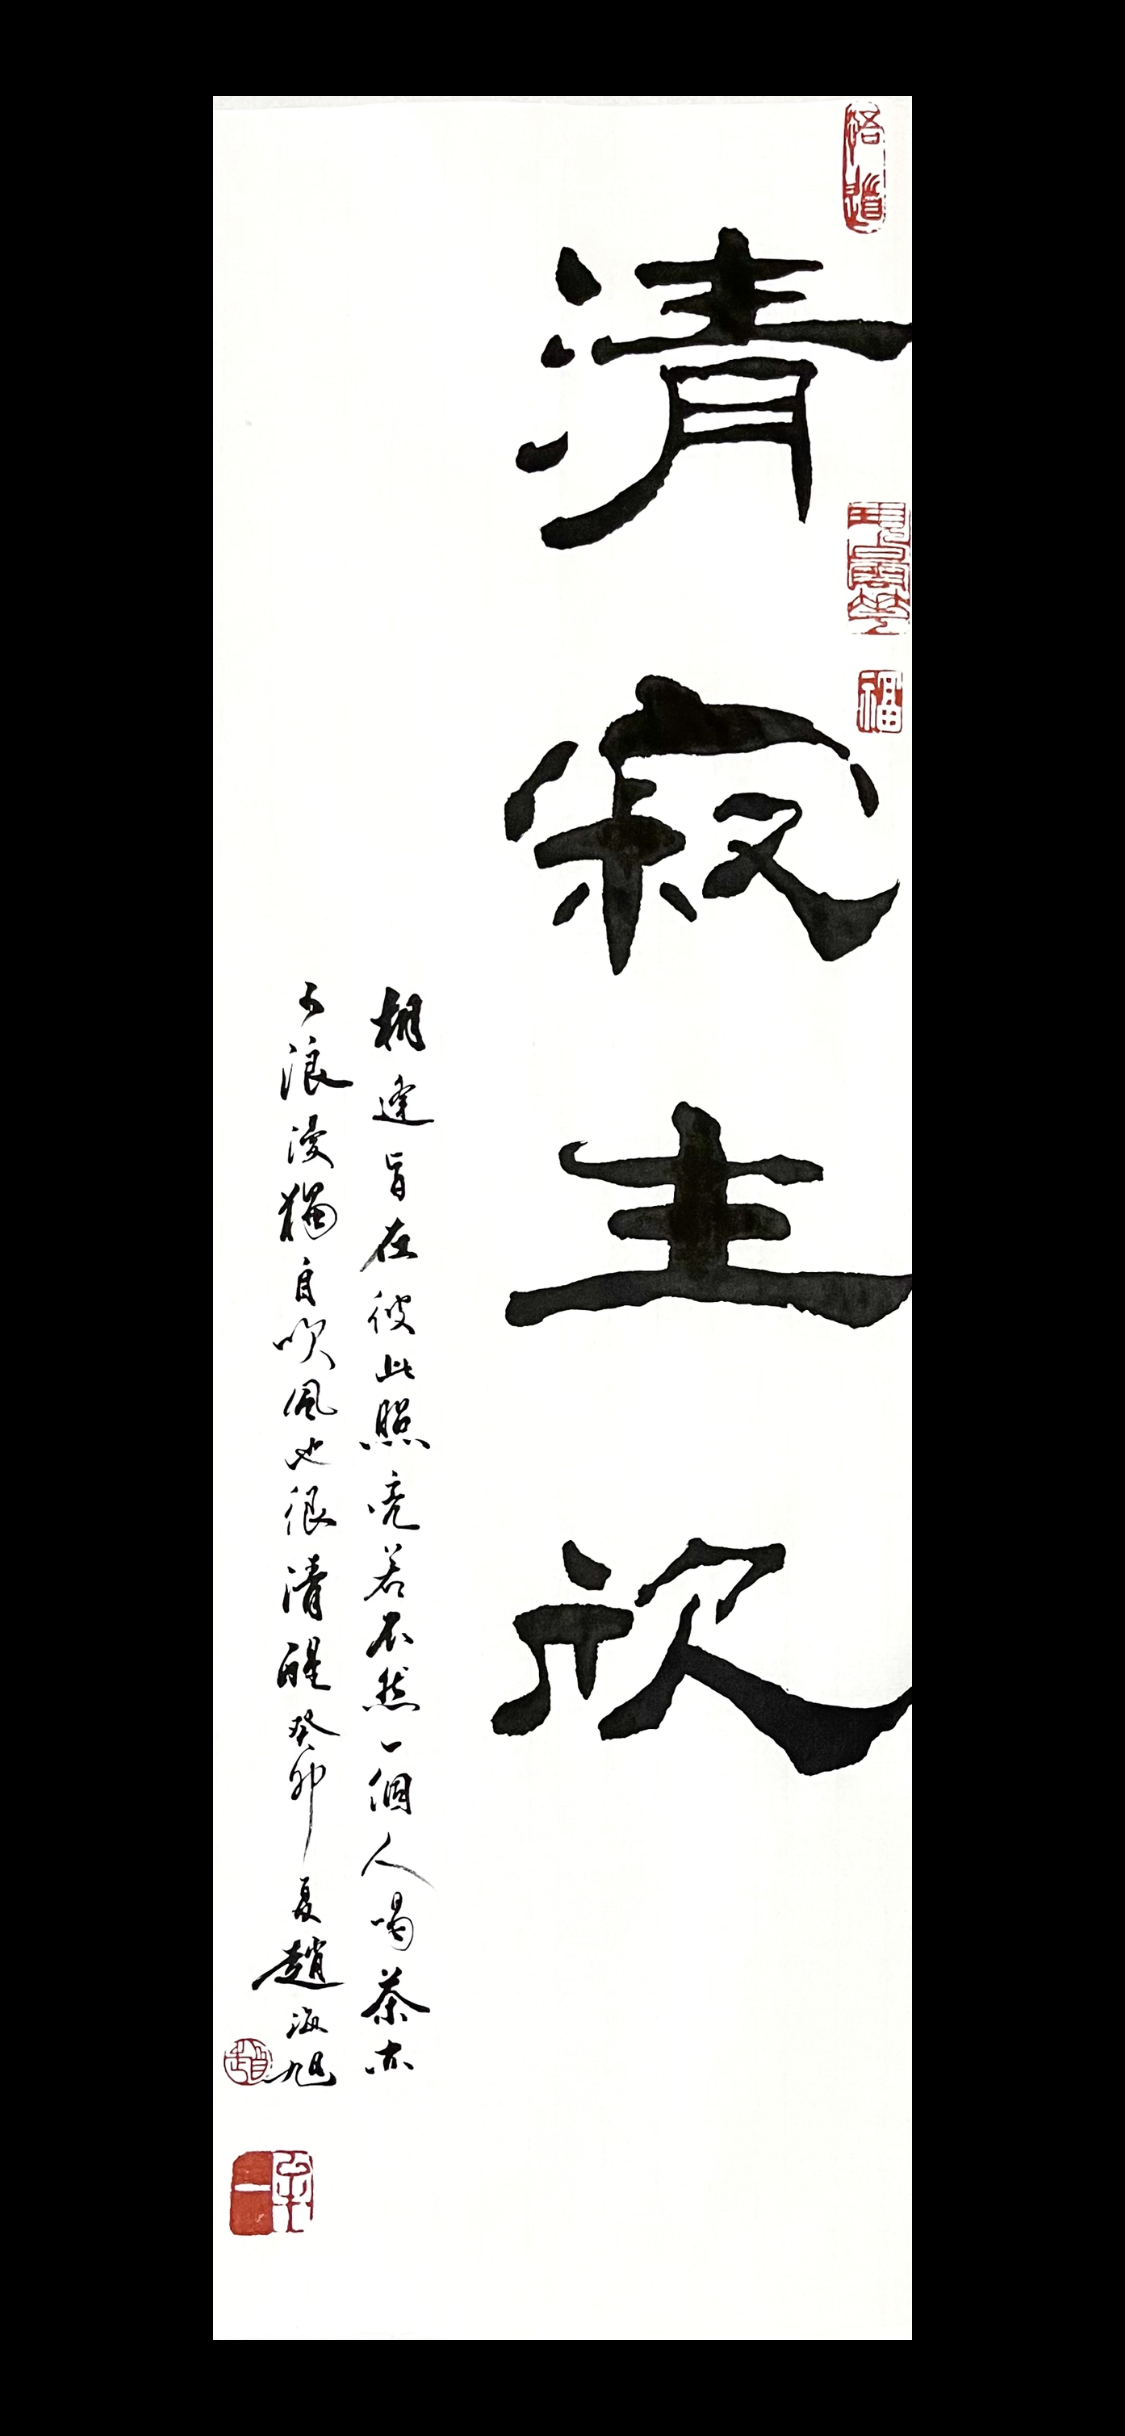 悟道
清寂生欣
福
相逢旨在彼此照亮若不然一個人喝茶亦
可浪漫獨自吹風也很清醒癸卯夏趙海旭
趙